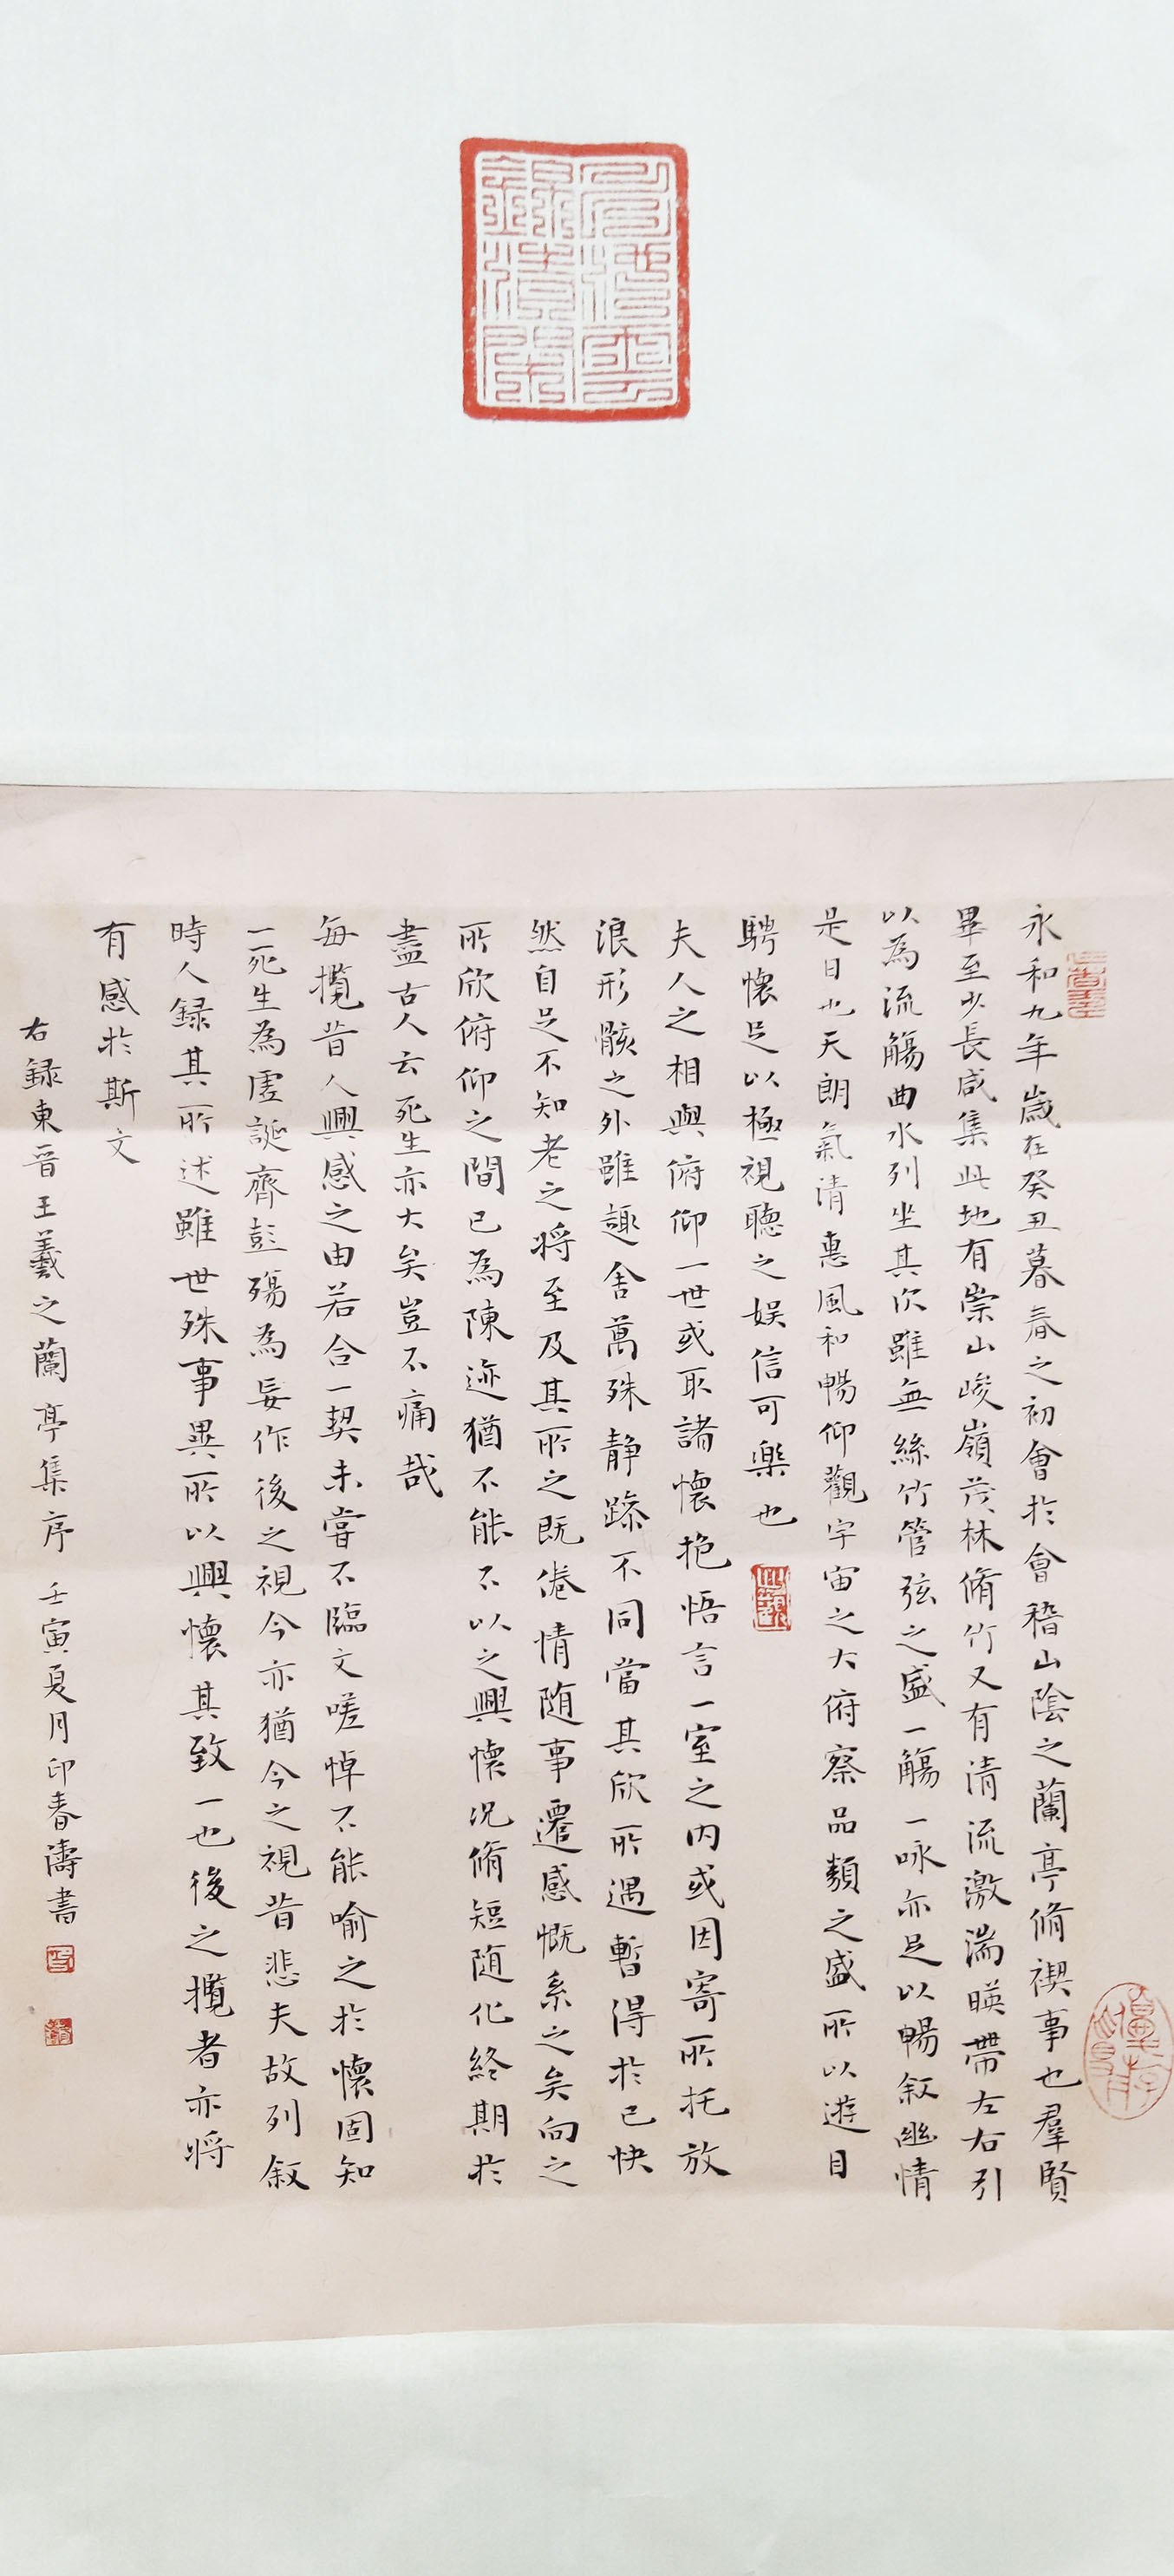 永和九年歲在癸丑暮春之初會於會稽山陰之蘭亭脩禊事也羣賢
畢至少長咸集此地有崇山峻嶺茂林脩竹又有清流激湍暎帶左右引
以為流觴曲水列坐其次雖無絲竹管弦之盛一觴一咏亦足以暢叙幽情
是日也天朗氣清惠風和暢仰觀宇宙之大俯察品類之盛所以遊目
騁懷足以極視聽之娛信可樂也
夫人之相與俯仰一世或取諸懷抱悟言一室之内或因寄所托放
浪形骸之外雖趣舍萬殊静躁不同當其欣所遇暫得於己快
然自足不知老之将至及其所之既倦情随事遷感慨系之矣向之
所欣俯仰之間已為陳迹猶不能不以之興懷况脩短随化終期於
盡古人云死生亦大矣豈不痛哉
每攬昔人興感之由若合一契未嘗不臨文嗟悼不能喻之於懷固知
一死生為虚誕齊彭殤為妄作後之視今亦猶今之視昔悲夫故列叙
時人録其所述雖世殊事異所以興懷其致一也後之攬者亦将
有感於斯文
右録東晉王羲之蘭亭集序 壬寅夏月印春濤書